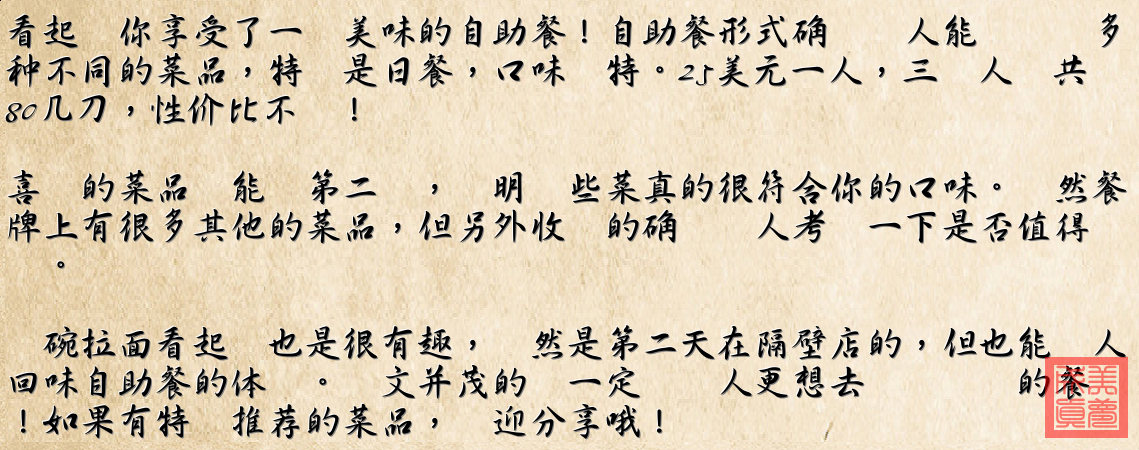 看起 你享受了一 美味的自助餐！自助餐形式确 人能 多
种不同的菜品，特 是日餐，口味 特。25美元一人，三 人 共
80几刀，性价比不 ！
喜 的菜品 能 第二 ， 明 些菜真的很符合你的口味。 然餐
牌上有很多其他的菜品，但另外收 的确 人考 一下是否值得
。
碗拉面看起 也是很有趣， 然是第二天在隔壁店的，但也能 人
回味自助餐的体 。 文并茂的 一定 人更想去 的餐
！如果有特 推荐的菜品， 迎分享哦！